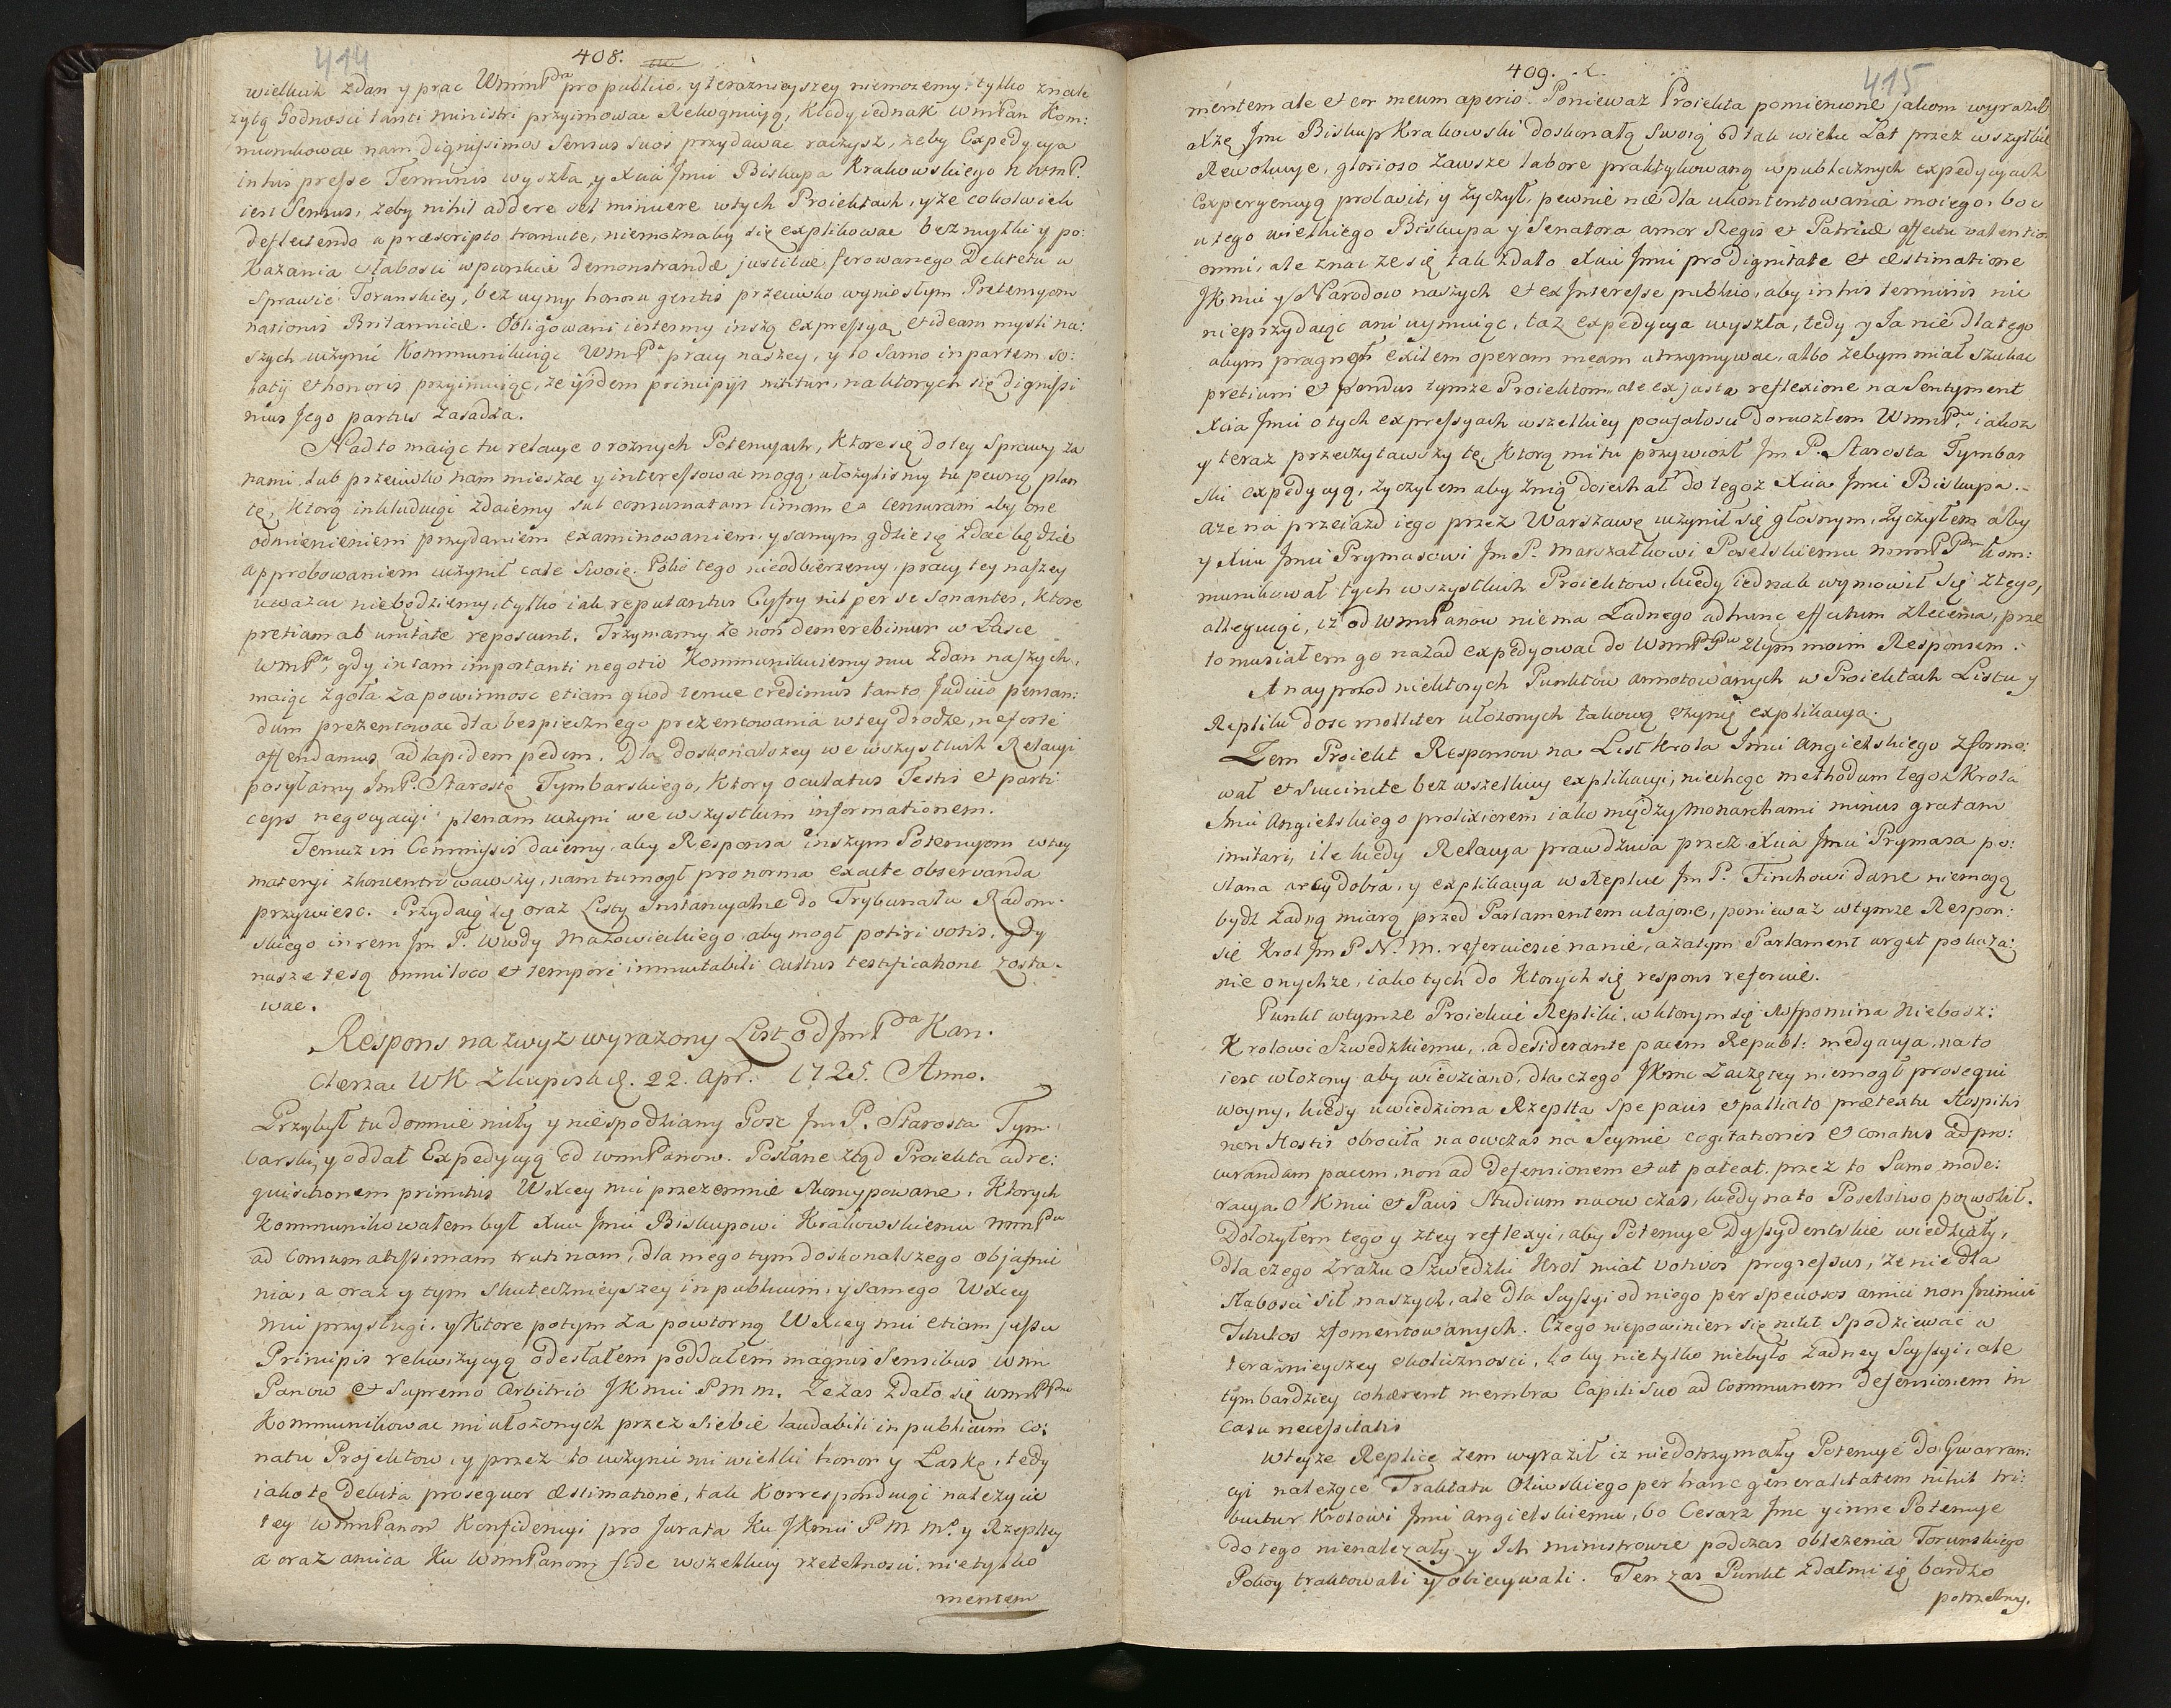 414
408.
wielkich zdan y prac WmmPda pro publico, y teraznieyszey niemozemy, tylko znale
zytą Godnosci tanti ministri przyimować Rekognicyą, Kiedy iednak WmPan Kom:
munikować nam dignissimos Sensus suos przydawać raczysz, żeby Expedycya
intus presse Terminis wyszła, y Xcia Jmci Biskupa Krakowskiego n WmP.
iest Sensus, żeby nihil addere vel minuere wtych Proiektach, yże cokolwiek
deflectendo a præscripto tramite, niemożnaby się explikować bez mylki y po:
kazania słabosci wpunkcie demonstrandæ justitiæ ferowanego Dekretu w
Sprawie Torunskiey, bez uymy honoru gentis przeciwko wyniosłym Pretensyom
nationis Britannicæ. Obligowani iestesmy inszą expressyą et ideam mysli na:
szych uczynić Kommunikuiąc WmPda pracy naszey, y to samo in partem so:
latij et honoris przyimuiąc, że ijsdem principijs nititur, na ktorych się dignissi
mus Jego partus zasadza.
Nadto maiąc tu relacye o rożnych Potencyach, Ktore się do tey Sprawy za
nami, lub przeciwko nam mieszać y interessować mogą, ułożylismy tu pewną plan
tę, Ktorą inkluduiąc zdaiemy sub consumatam limam et censuram aby one
odmienieniem przydaniem examinowaniem, y samym gdzie się zdać będzie
approbowaniem uczynił całe swoie. Poki tego nieodbierzemy, pracy tey naszey
uważać niebędziemy, tylko iak reputantur Cyfry nil per se sonantes, Ktore
pretium ab unitate reposcunt. Trzymamy że non demerebimur w Łasce
WmPa, gdy in tam importanti negotio Kommunikuiemy mu zdan naszych,
maiąc zgoła za powinnosc etiam quod tenue credimus tanto Judicio pensan:
dum prezentować dla bespiecznego prezentowania wtey drodze, ne forte
offendamus ad lapidem pedem. Dla doskonalszey we wszystkich Relacyi
posyłamy JmP. Starostę Tymbarskiego, Ktory oculatus Testis et parti
ceps negocyacyi plenam uczyni we wszystkim informationem.
Temuż in Commissis daiemy, aby Responsa inszym Potencyom wtey
materyi zkoncentrowawszy, nam tu mogł pro norma exacte observanda
przywiesc. Przydaią się oraz Listy Instancyalne do Trybunału Radom:
skiego in rem Jm P. Wwdy Mazowieckiego aby mogł potiri votis, gdy
nasze tesą omni loco et tempore immutabili cultus testificatione zosta:
wac.
Respons na zwyż wyrażony List od JmPda Kan.
clerza WK Zkupiskiey. 22. Apr. 1725. Anno.
Przybył tu do mnie miły y niespodziany Gosc Jm P. Starosta Tym:
barski, y oddał Expedycyą od WmmPanow. Posłane ztąd Proiekta ad re:
quisitionem primitus WXcey mci przezemnie skoncypowane, Ktorych
Kommunikowałem był Xciu Jmci Biskupowi Krakowskiemu mmPdu
ad consumatissimam trutinam, dla niego tym doskonalszego objasnie
nia, a oraz y tym skutecznieyszey in publicum, y samego WXcey
mci przysługi. y Ktore potym za powtorną WXcey mci etiam jussu
Principis rekwizycyą odesłałem poddałem magnis Sensibus Wmm
Panow et Supremo Arbitrio JKmci Pmm. Ze zas zdało się WmmPPdu
Kommunikować mi ułożonych przez siebie laudabili in publicum co:
natu Projektow, y przez to uczynić mi wielki honor y Łaskę, tedy
iako tę debita prosequor æstimatione, tak Korresponduiąc należycie
tey WmmPanow Konfidencyi pro Jurata Ku JKmci P M M°. y Rzeplтеy
a oraz amica Ku WmmPanom fide wszelkiey rzetelnosci. nietylko
mentem
409.
415
mentem ale et cor meum aperio. Ponieważ Proiekta pomienione jakom wyraził
Xże Jmc Biskup Krakowski doskonałą swoią od tak wielu Lat przez wszytkie
Rewolucye, glorioso zawsze labore praktykowaną wpublicznych expedycyach
Experyencyą probavit, y życzył, pewnie nie dla ukontentowania moiego, bo c
u tego wielkiego Biskupa y Senatora amor Regis et Patriæ affectu valentior
omni, ale znac ze się tak zdało Xciu Jmci pro dignitate et æstimatione
JKmci y Narodow naszych et ex Interesse publico, aby intus terminis nic
nieprzydaiąc ani uymuiąc, taż expedycya wyszła, tedy y Ja nie dlatego
abym pragnął exilem operam meam utrzymywać, albo żebym miał szukac
pretium et pondus tymże Proiektom, ale ex justa reflexione na Sentyment
Xcia Jmci o tych expressyach wszelkiey poufałosci donoszłem WmmPdu, iakoz
y teraz przeczytawszy tę, Ktorą mi tu przywiozł Jm P. Starosta Tymbar
ski expedycyą, życzyłem aby znią doiechał do tegoż Xcia Jmci Biskupa.
aże na przeiazd iego przez Warszawę uczynił się głosnym, życzyłem aby
y Xciu Jmci Prymasowi Jm P. Marszałkowi Poselskiemu mmPPdm kom:
munikował tych wszystkich Proiektow, kiedy iednak wymowił się ztego,
alleguiąc, iż od WmmPanow niema żadnego ad hunc effectum zlecenia, prze
to musiałem go nazad expedyować do WmmPPdw ztym moim Responsem.
A nayprzod niektorych Punktow annotowanych w Proiektach Listu y
Repliki dosc molliter ułożonych takową czynię explikacyą.
Zem Proiekt Responsow na List Krola Jmci Angielskiego zformo:
wał et succincte bez wszelkiey explikacyi, niechcąc methodum tegoż Krola
Jmci Angielskiego prolixiorem iako między Monarchami minus gratam
imitari, ile kiedy Relacya prawdziwa przez Xcia Jmci Prymasa po:
słana arcydobra, y explikacya w Replice Jm P. Finchowi dane niemogą
bydź żadną miarą przed Parlamentem utajone, ponieważ wtymże Respon:
sie Krol Jm P N. M. referuiesie na nie, a zatym Parlament urget pokaza:
nie onychże, iako tych do Ktorych się respons referuie.
Punkt wtymże Proiekcie Repliki, wktorym się wspomina Niebosz:
Krolowi Szwedzkiemu, a desiderante pacem Republ: medyacya, na to
iest włożony aby wiedziano, dla czego JKmc zaczętey niemogł prosequi
woyny, kiedy uwiedziona Rzeplta spe pacis et palliato prætextu Hospitis
non Hostis obrociła naowczas na Seymie cogitationes et conatus ad pro:
curandam pacem, non ad defensionem et ut pateat. przez to samo mode:
racya JKmci et Pacis studium naowczas, kiedy na to Poselstwo pozwolił.
Dołożyłem tego y ztey reflexyi, aby Potencye Dyssydentskie wiedziały,
dla czego zrazu Szwedzki Krol miał votivos progressus, że nie dla
słabosci sił naszych, ale dla Scyssyi od niego per speciosos amici non Inimici
Titulos zfomentowanych. Czego niepowinien się nikt spodziewać w
teraznieyszey okolicznosci, bo by nietylko niebyło żadney Scyssyi, ale
tym bardziey cohærent membra Capiti suo ad communem defensionem in
casu necessitatis
Wteyże Replice żem wyraził iż niedotrzymały Potencye do Gwarran:
cyi należące Traktatu Oliwskiego per hanc generalitatem nihil tri:
buitur Krolowi Jmci Angielskiemu, bo Cesarz Jmc y inne Potencye
do tego nienalezały y Ich ministrowie podczas oblężenia Torunskiego
Pokoy traktowali y obiecywali. Ten zas Punkt zdał mi się bardzo
potrzebny.